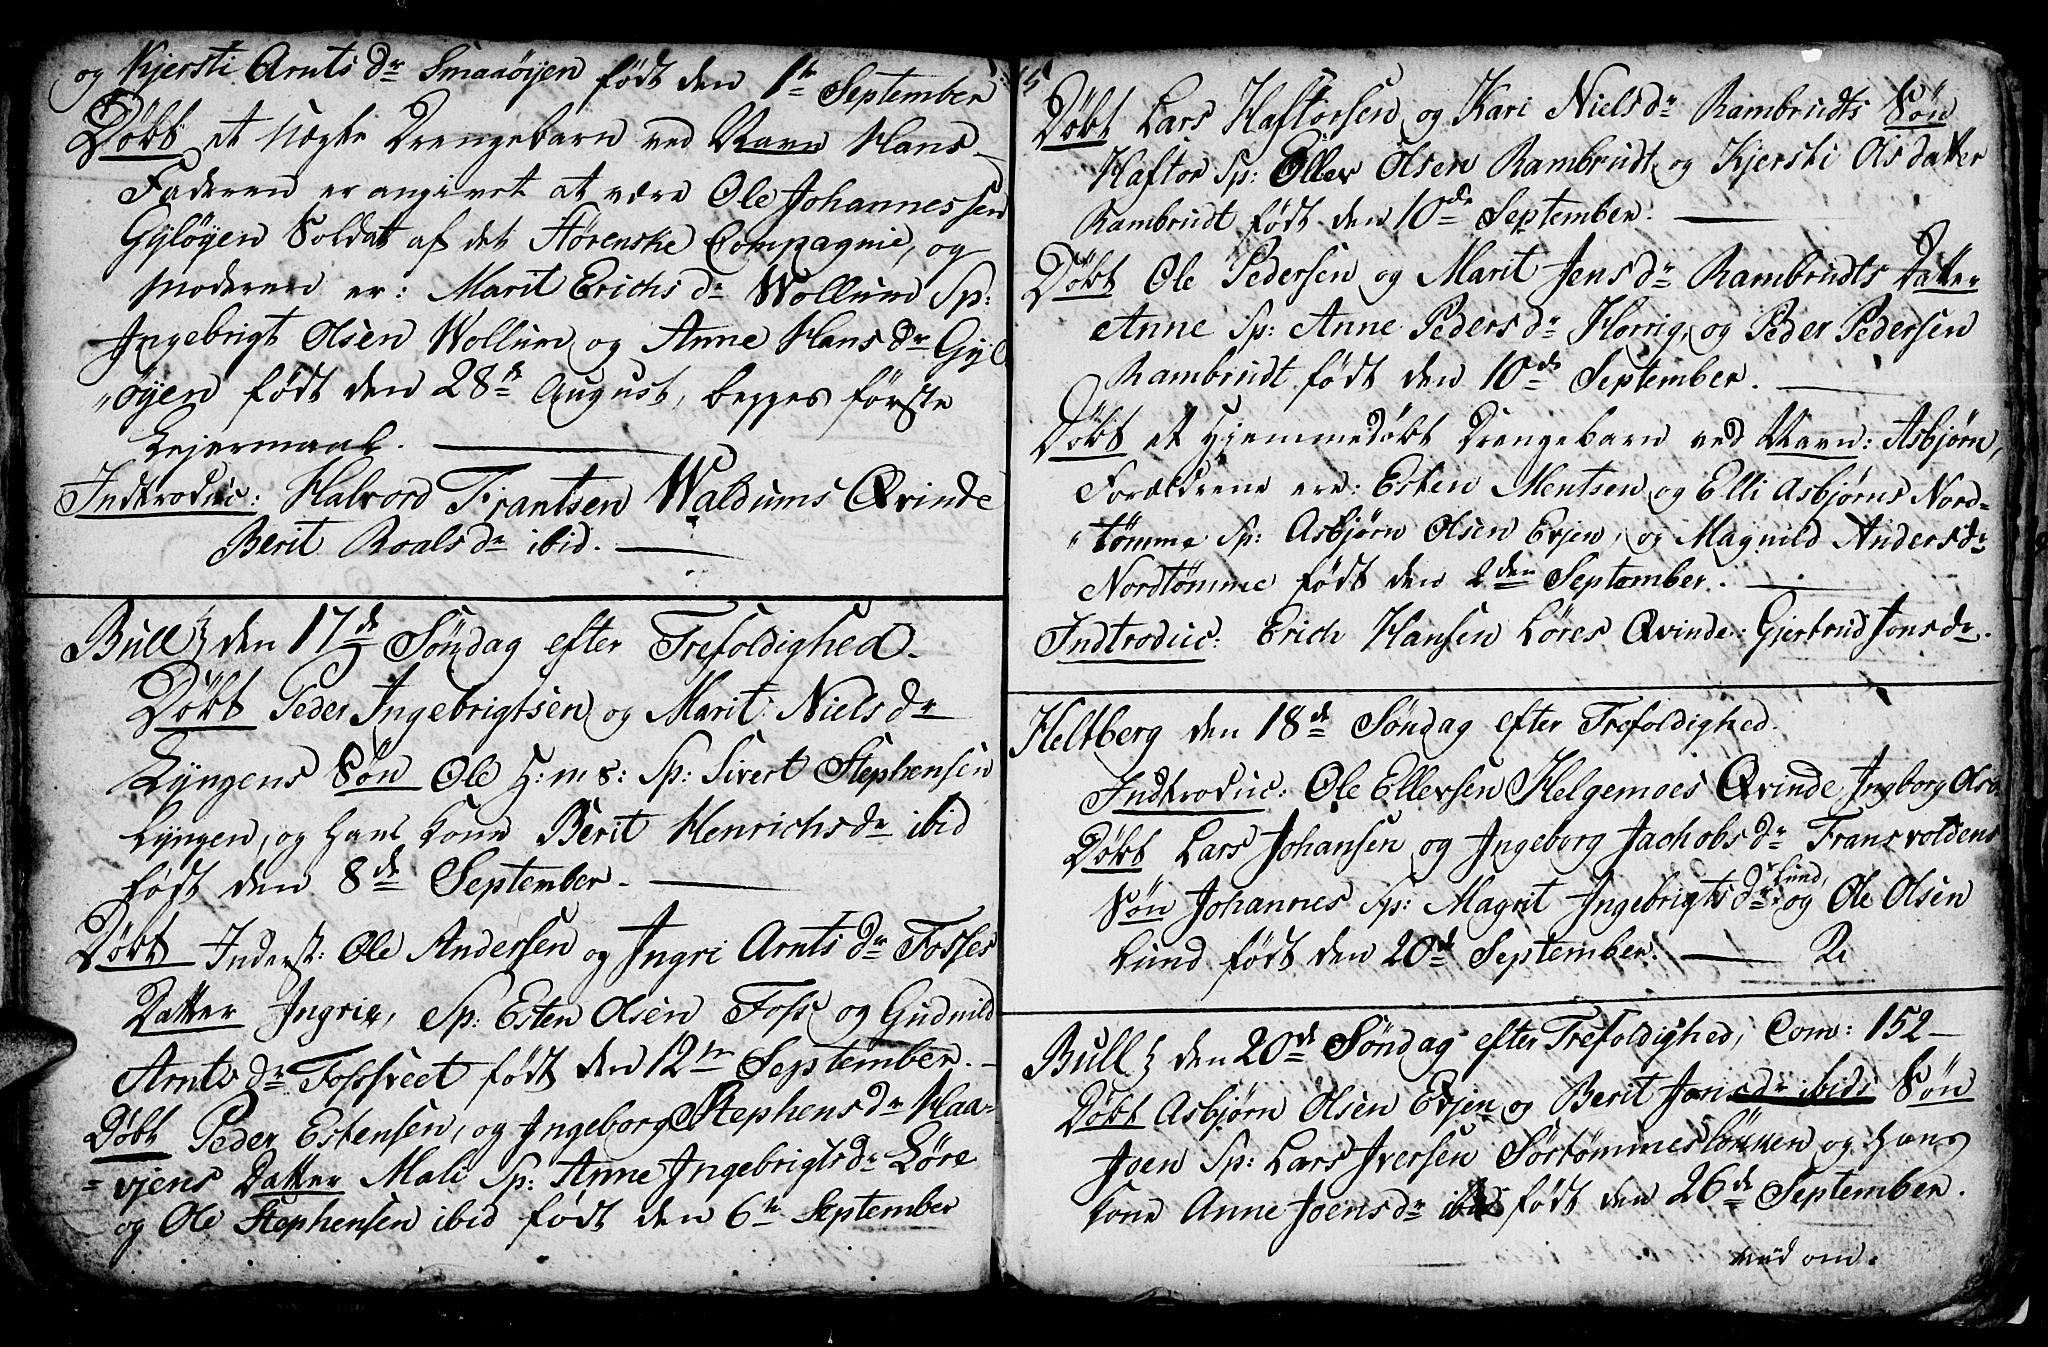 og Kjersti Arnts dr Smaaøyen født den 1te September
Døbt et uægte Drengebarn ved Navn Hans
Faderen er angivet at være Ole Johannessen
Gyløyen Soldat af det Størenske Compagnie, og
Moderen er: Marit Erichs dr Wollum Sp:
Ingebrigt Olsen Wollum og Anne Hans dr Gyl
"øyen født den 28de August, begges første
Leiermaal.
Introduc: Halvord Frantsen Waldums Qvinde
Berit Roals dr ibid.
Bull den 17de Søndag efter Trefoldighed.
Døbt Peder Ingebrigtsen og Marit Niels dr
Lyngens Søn Ole H: m 8: Sp: Sivert Stephensen
Lyngen, og hans Kone Berit Henrichs dr ibid
født den 8de September.
Døbt Inderst: Ole Andersen og Ingri Arnts dr Fosses
Datter Ingrie, Sp: Esten Olsen Foss og Gudnild
Arnts dr Fossveet født den 12te September.
Døbt Peder Estensen, og Ingeborg Stephens dr Haa-
-vjens Datter Mali Sp: Anne Ingebrigts dr Løre
og Ole Stephensen ibid født den 6te September
15
Døbt Lars Haftorsen og Kari Niels dr Rambrudts Søn
Haftor Sp: Ellev Olsen Rambrudt og Kjersti Ols datter
Rambrudt født den 10de September.
Døbt Ole Pedersen og Marit Jens dr Rambrudts Datter
Anne Sp: Anne Peders dr Horrig, og Peder Pedersen
Rambrudt født den 10de September.
Døbt et Hjemmedøbt Drengebarn ved Navn: Asbjørn,
Forældrene ere: Esten Mentsen og Elli Asbjørns Nord-
"tømme Sp: Asbjørn Olsen Evjen, og Magnild Anders dr
Nordtømme født den 2den September.
Introduc: Erich Hansen Løres Qvinde: Gjertrud Jons dr.
Heltberg den 18de Søndag efter Trefoldighed.
Introduc: Ole Ellevsen Helgemoes Qvinde Ingborg Ols
Døbt Lars Johansen og Ingeborg Jachobs dr Fransvoldens
Søn Johannes Sp: Magrit Ingebrigts dr Lund, og Ole Olsen
Lund født den 20de September.
Bull den 20de Søndag efter Trefoldighed, Com: 152-
Døbt Asbjørn Olsen Evjen og Berit Jons dr ibids Søn
Joen Sp: Lars Iversen Sørtømmesløkken og hans
Kone Anne Joens dr ibid født den 26de September.
vend om.